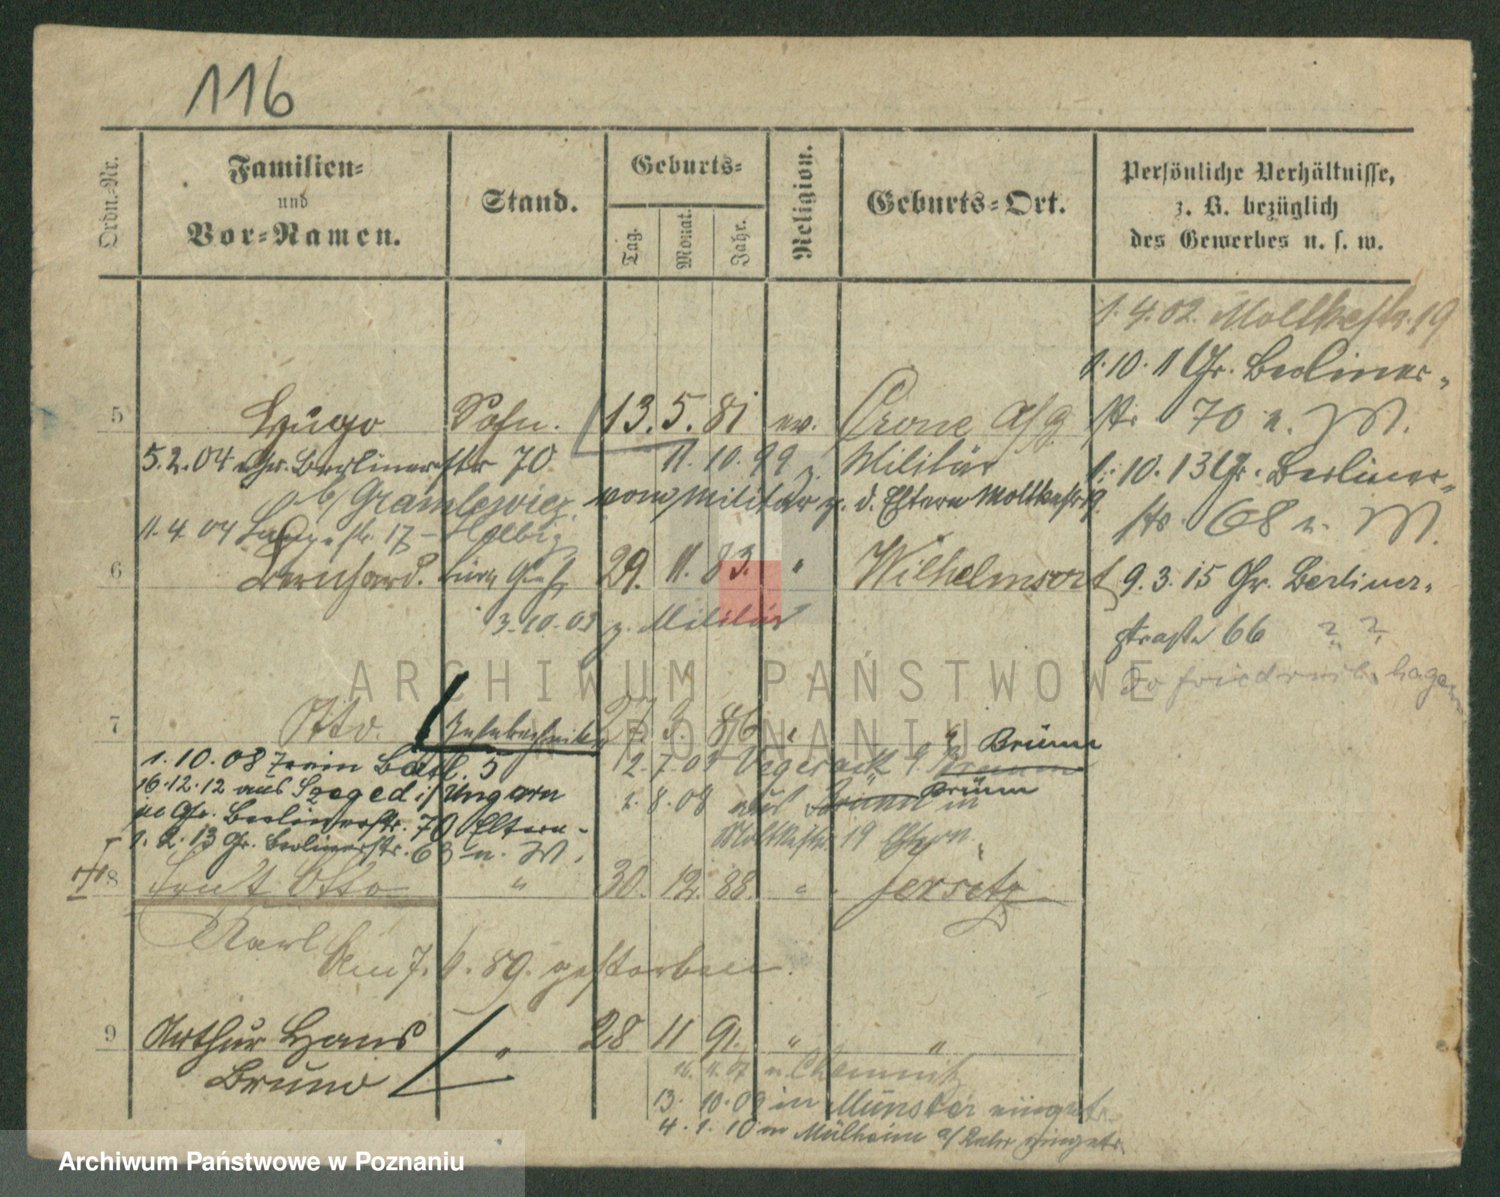 116
Ordn.-Nr.
Familien-
und
Vor-Namen.
Stand.
Geburts-
Tag.
Monat.
Jahr.
Religion.
Geburts-Ort.
Persönliche Verhältnisse,
z. B. bezüglich
des Gewerbes u. s. w.
1.4.02. Moltkestr. 19
1.10.11 Gr. Berliner-
str 70 n. M.
1.10.13 Gr. Berliner-
str. 68 n. M.
9.3.15 Gr. Berliner-
straße 66 ? ?
5 Hugo Sohn. 13. 5. 81 ev. Crone a/B
5.2.04 Gr. Berlinerstr 70 11.10.99 z. Militär
b/ vom Militär z. d. Eltern Moltkestr 19.
11.4.04 Langestr. 17 - Helbig
6 Bernhard. 29. 11. 83. " Wilhelmsort
3.10.03 z. Militär
7 Otto. 27 3. 86 " "
1.10.08 Bartl. 5 2.7.03 Vegesack Brünn
16.12.12 aus Szeged i/ Ungarn 8.08 aus Brünn in
Gr. Berlinerstr. 70 Eltern - Moltkestr 19 Eltern.
1.2.13 Gr. Berlinerstr. 68 n. M.
8 Otto " 30. 12. 88. " Jersitz
Karl
Am 7. 6. 89. gestorben.
9 Arthur Hans " 28 11 91. " "
Bruno
n. Chemnitz
13. 10.09 in Münster eingetr.
4.1.10 in Mülheim a/ Ruhr eingetr.
ARCHIWUM PAŃSTWOWE
W POZNANIU
Archiwum Państwowe w Poznaniu